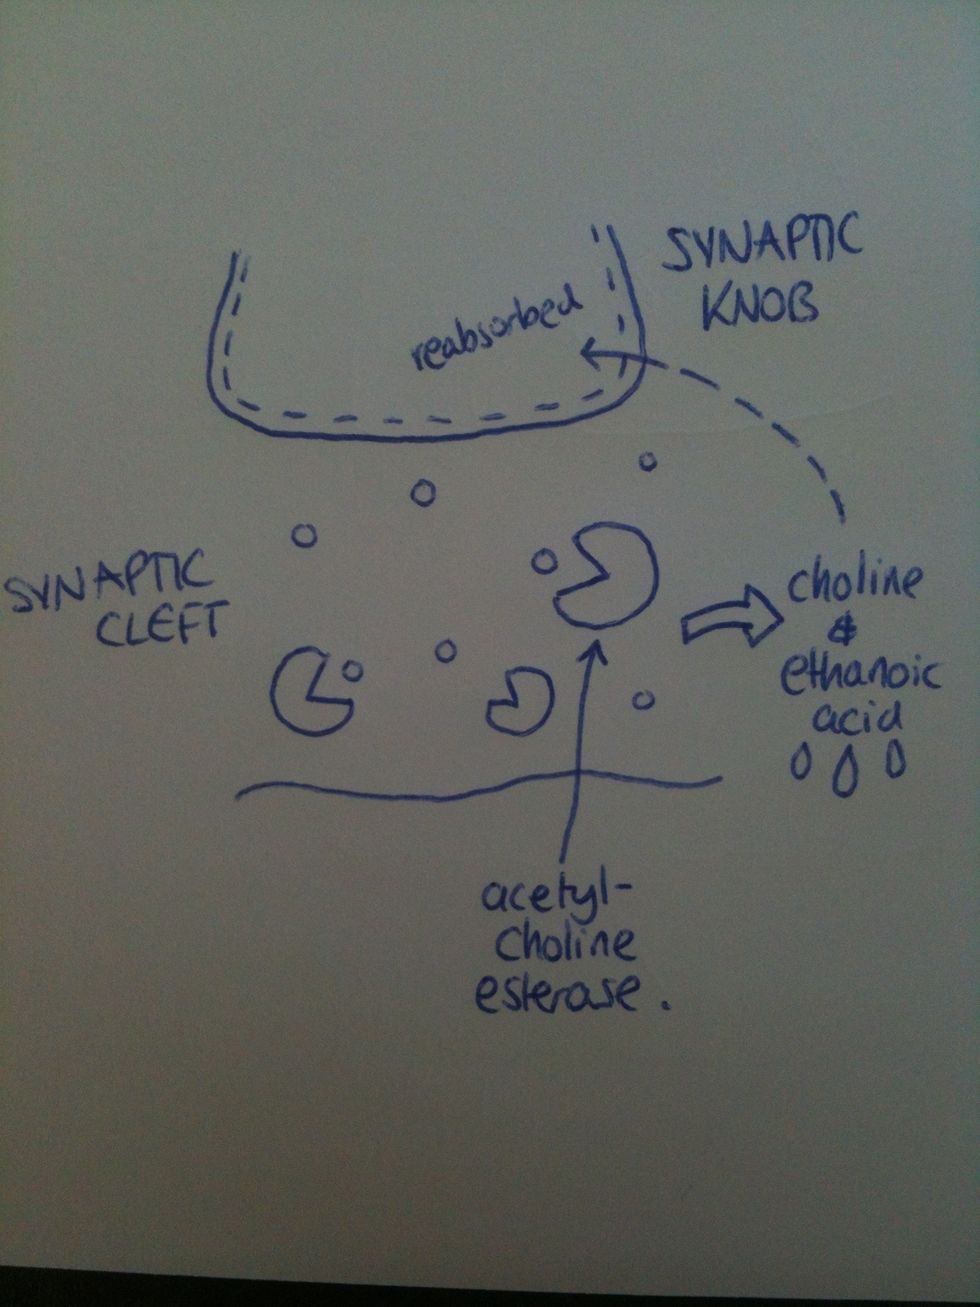 SYNAPTIC
KNOB
reabsorbed
SYNAPTIC
CLEFT
choline
&
ethanoic
acid
acetyl-
choline
esterase.